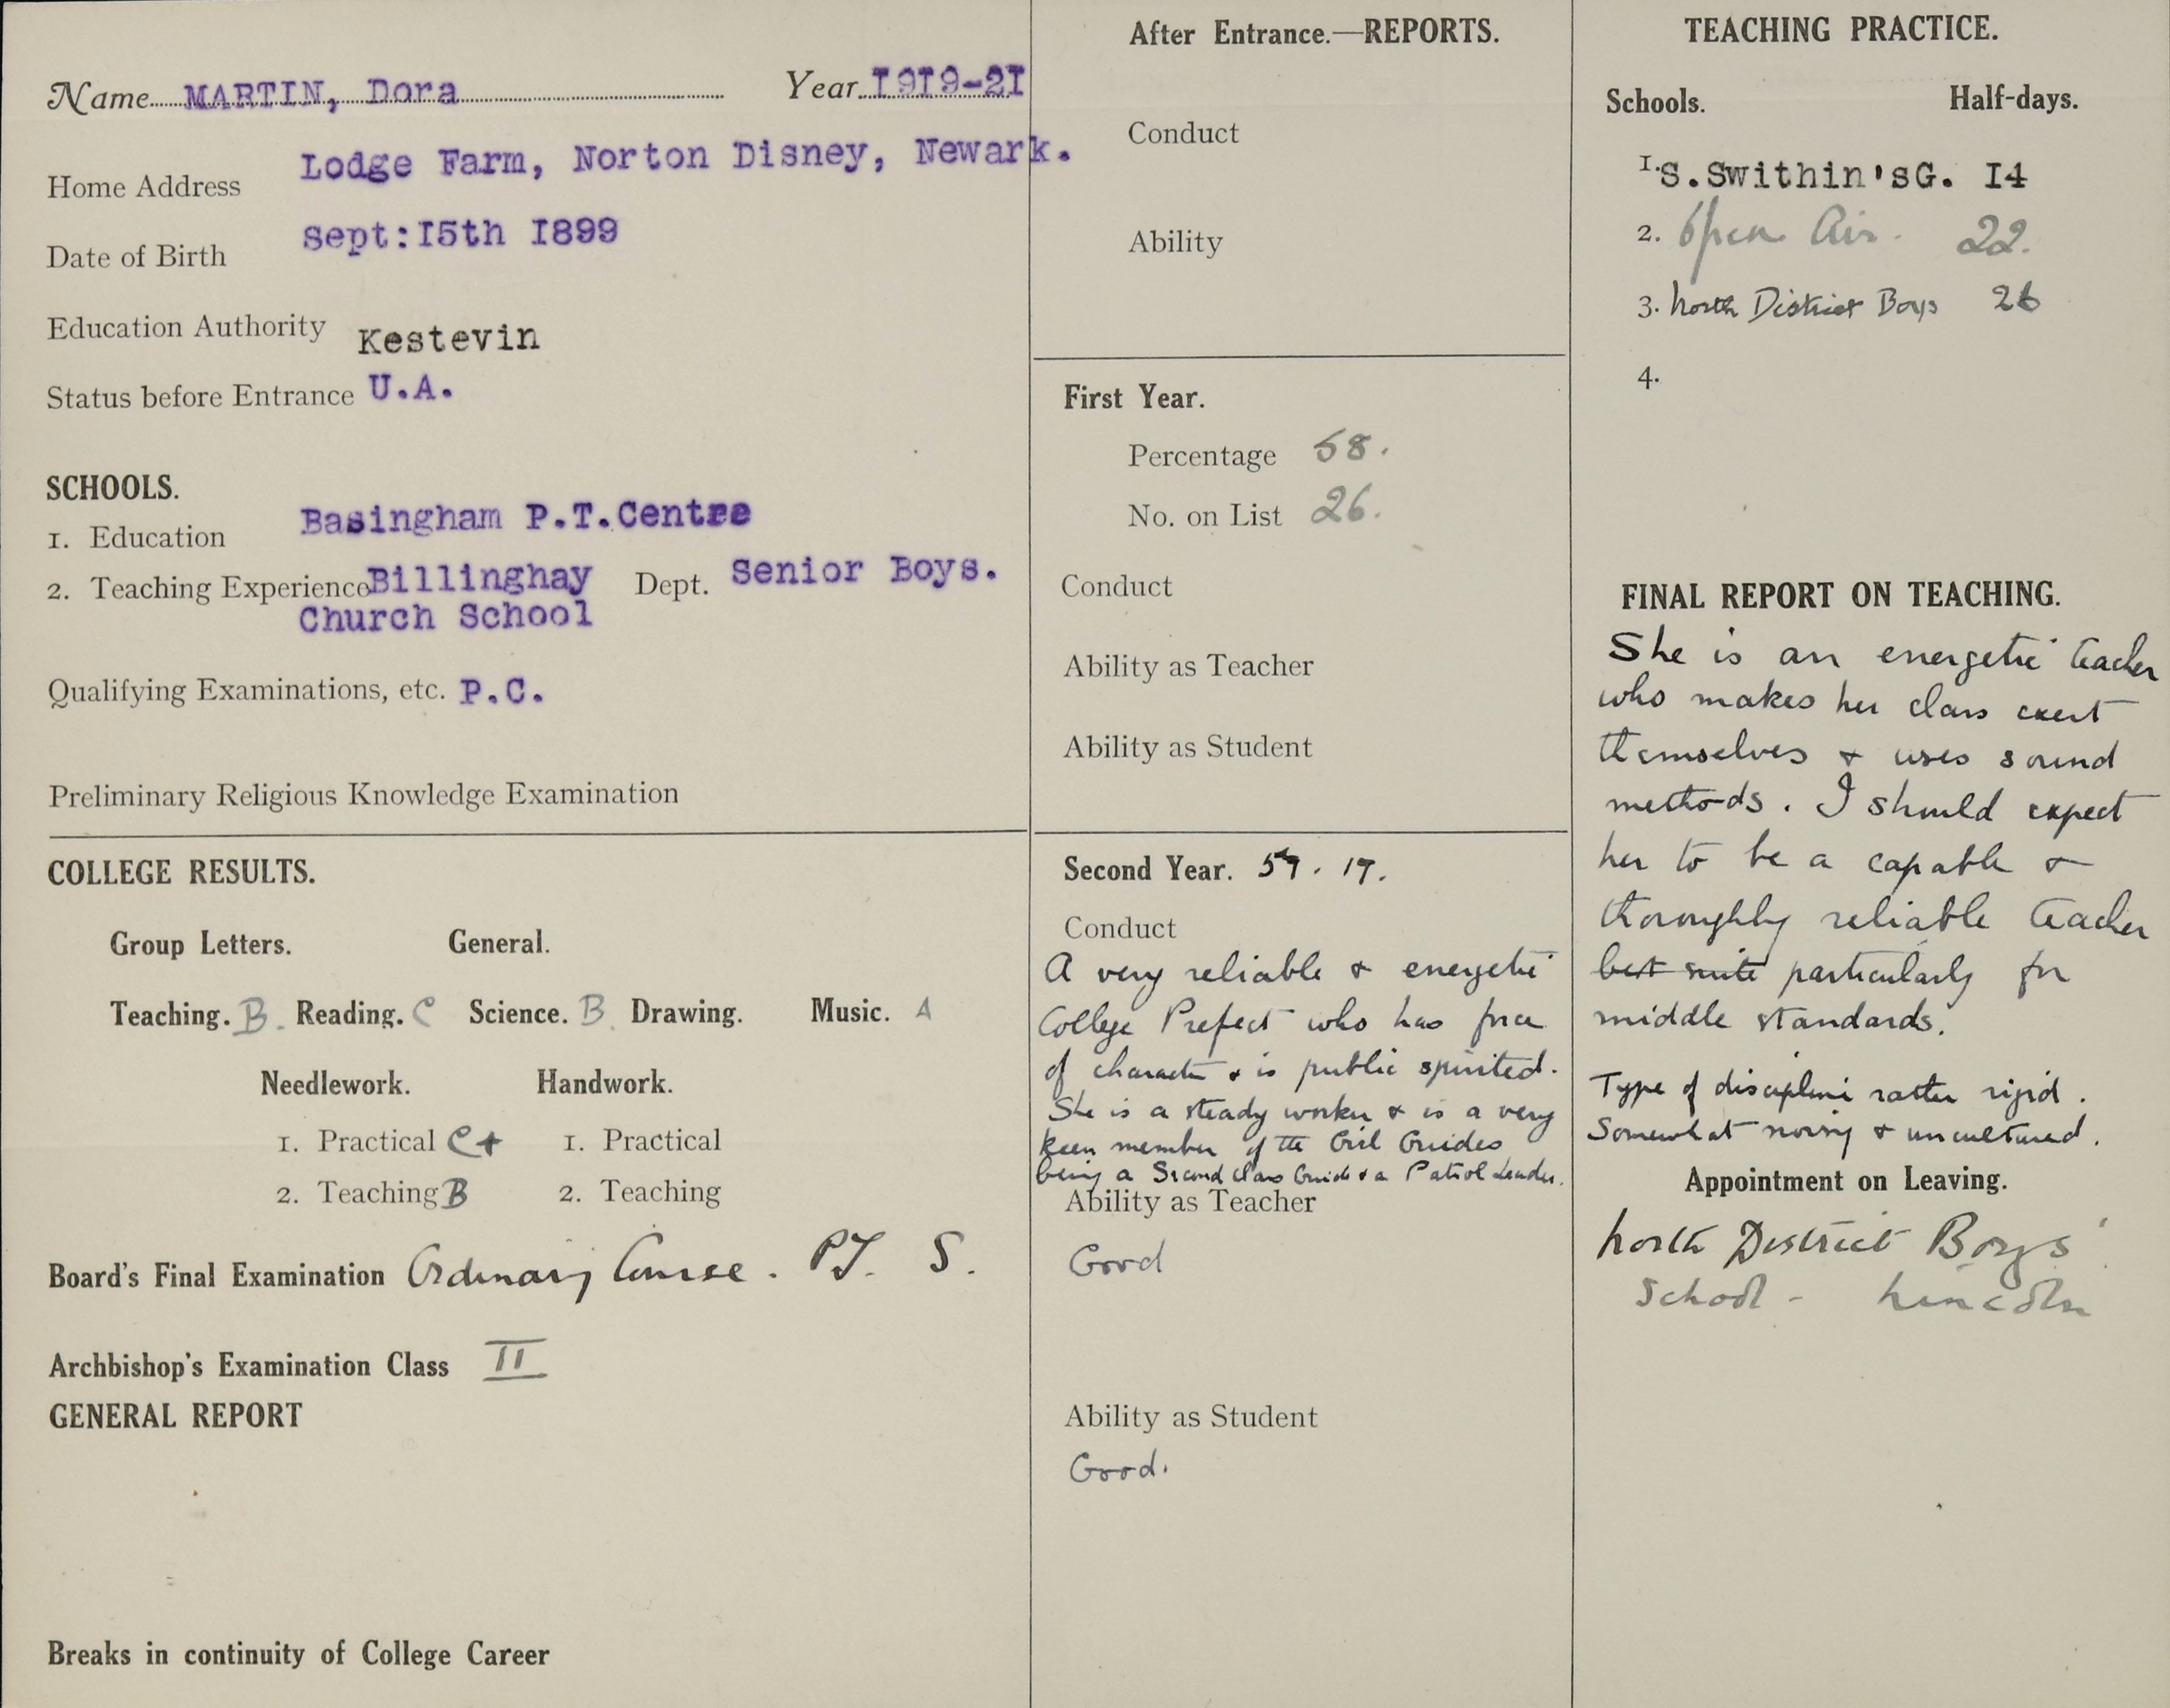 Name MARTIN, Dora Year I9I9-2I
Home Address Lodge Farm, Norton Disney, Newark.
Date of Birth Sept:I5th I899
Education Authority Kestevin
Status before Entrance U.A.
SCHOOLS.
1. Education Basingham P.T.Centre
2. Teaching Experience Billinghay Dept. Senior Boys.
Church School
Qualifying Examinations, etc. P.C.
Preliminary Religious Knowledge Examination
COLLEGE RESULTS.
Group Letters. General.
Teaching. B. Reading. C Science. B. Drawing. Music. A
Needlework. Handwork.
1. Practical C+ 1. Practical
2. Teaching B 2. Teaching
Board's Final Examination Ordinary Course. S.
Archbishop's Examination Class II
GENERAL REPORT
Breaks in continuity of College Career
After Entrance.—REPORTS.
Conduct
Ability
First Year.
Percentage 58.
No. on List 26.
Conduct
Ability as Teacher
Ability as Student
Second Year. 17.
Conduct
A very reliable & energetic
College Prefect who has force
of character & is public spirited.
She is a steady worker & is a very
keen member of the Girl Guides
being a Second class Guide & a Patrol Leader.
Ability as Teacher
Good
Ability as Student
Good.
TEACHING PRACTICE.
Schools. Half-days.
I.S.Swithin'sG. I4
2. Open Air. 22.
3. North District Boys 26
4.
FINAL REPORT ON TEACHING.
She is an energetic teacher
who makes her class exert
themselves & uses sound
methods. I should expect
her to be a capable &
thoroughly reliable teacher
best suite particularly for
middle standards.
Type of discipline rather rigid.
Somewhat noisy & uncultured.
Appointment on Leaving.
North District Boys'
School - Lincoln